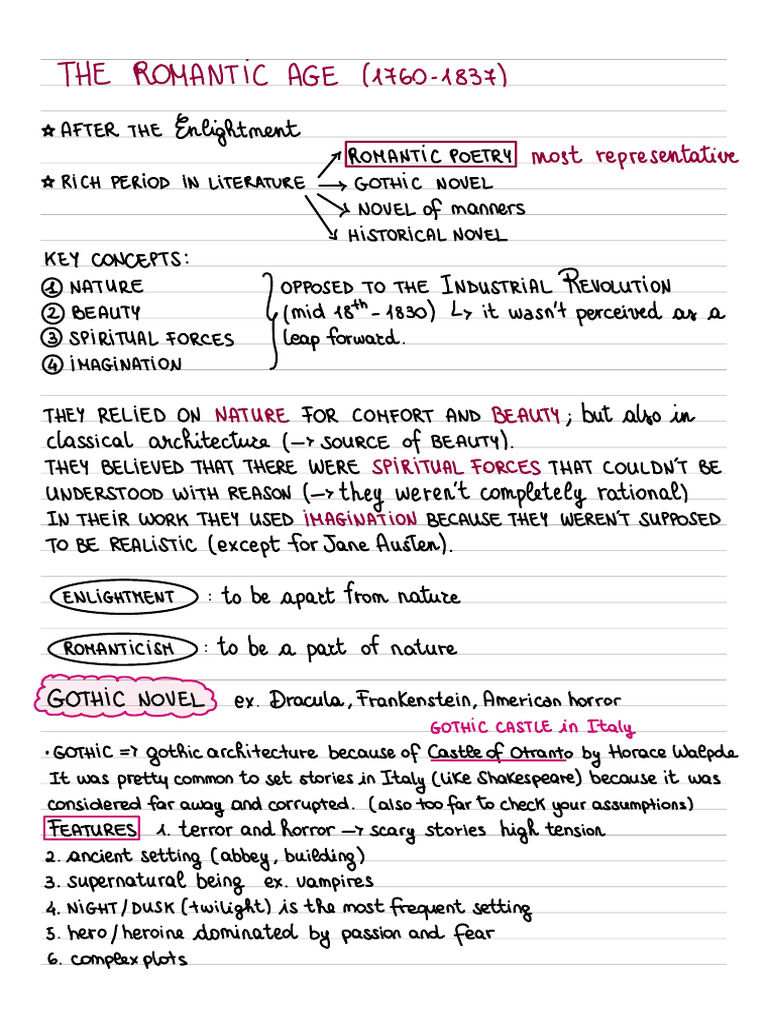 THE ROMANTIC AGE (1760-1837)
☆ AFTER THE Enlightment
ROMANTIC POETRY most representative
☆ RICH PERIOD IN LITERATURE → GOTHIC NOVEL
NOVEL of manners
HISTORICAL NOVEL
KEY CONCEPTS:
① NATURE OPPOSED TO THE INDUSTRIAL REVOLUTION
② BEAUTY (mid 18th - 1830) ↳ it wasn't perceived as a
③ SPIRITUAL FORCES leap forward.
④ IMAGINATION
THEY RELIED ON NATURE FOR COMFORT AND BEAUTY; but also in
classical architecture (→ SOURCE of BEAUTY).
THEY BELIEVED THAT THERE WERE SPIRITUAL FORCES THAT COULDN'T BE
UNDERSTOOD WITH REASON (→ they weren't completely rational)
IN THEIR WORK THEY USED IMAGINATION BECAUSE THEY WEREN'T SUPPOSED
TO BE REALISTIC (except for Jane Austen).
ENLIGHTMENT : to be apart from nature
ROMANTICISM : to be a part of nature
GOTHIC NOVEL ex. Dracula, Frankenstein, American horror
GOTHIC CASTLE in Italy
• GOTHIC => gothic architecture because of Castle of Otranto by Horace Walpole
It was pretty common to set stories in Italy (like Shakespeare) because it was
considered far away and corrupted. (also too far to check your assumptions)
FEATURES 1. terror and horror → scary stories high tension
2. ancient setting (abbey, building)
3. supernatural being ex. vampires
4. NIGHT/DUSK (twilight) is the most frequent setting
5. hero/heroine dominated by passion and fear
6. complex plots